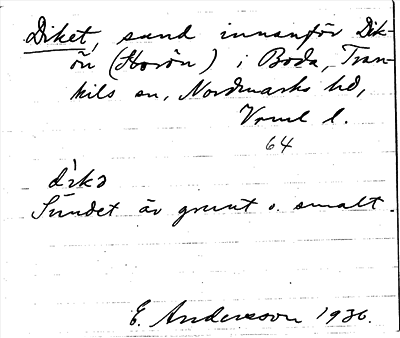 Diket, sund innanför Dik-
ön (Storön) i Boda, Tran-
kils sn, Nordmarks hd,
Vrml l.
64
dikə
Sundet är grunt o. smalt.
E. Andersson 1936.